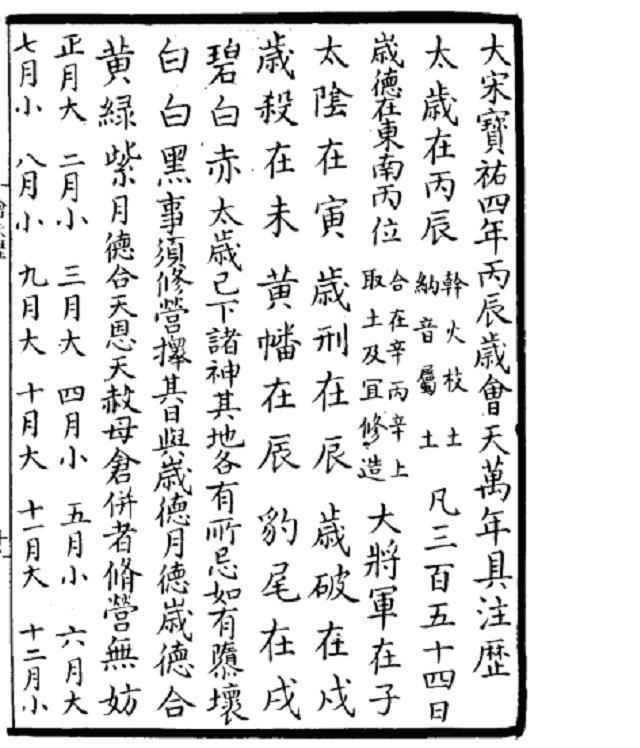 大宋寶祐四年丙辰歲會天萬年具注歴
太歲在丙辰 幹火枝土 納音屬土 凡三百五十四日
歲德在東南丙位 合在辛丙辛上 取土及冝修造 大將軍在子
太陰在寅 歲刑在辰 歲破在戍
歲殺在未 黄幡在辰 豹尾在戍
碧白赤太歲已下諸神其地各有所忌如有隳壞
白白黑事須修營擇其日與歲德月德歲德合
黄緑紫月德合天恩天赦母倉併者脩營無妨
正月大 二月小 三月大 四月小 五月小 六月大
七月小 八月小 九月大 十月大 十一月大 十二月小